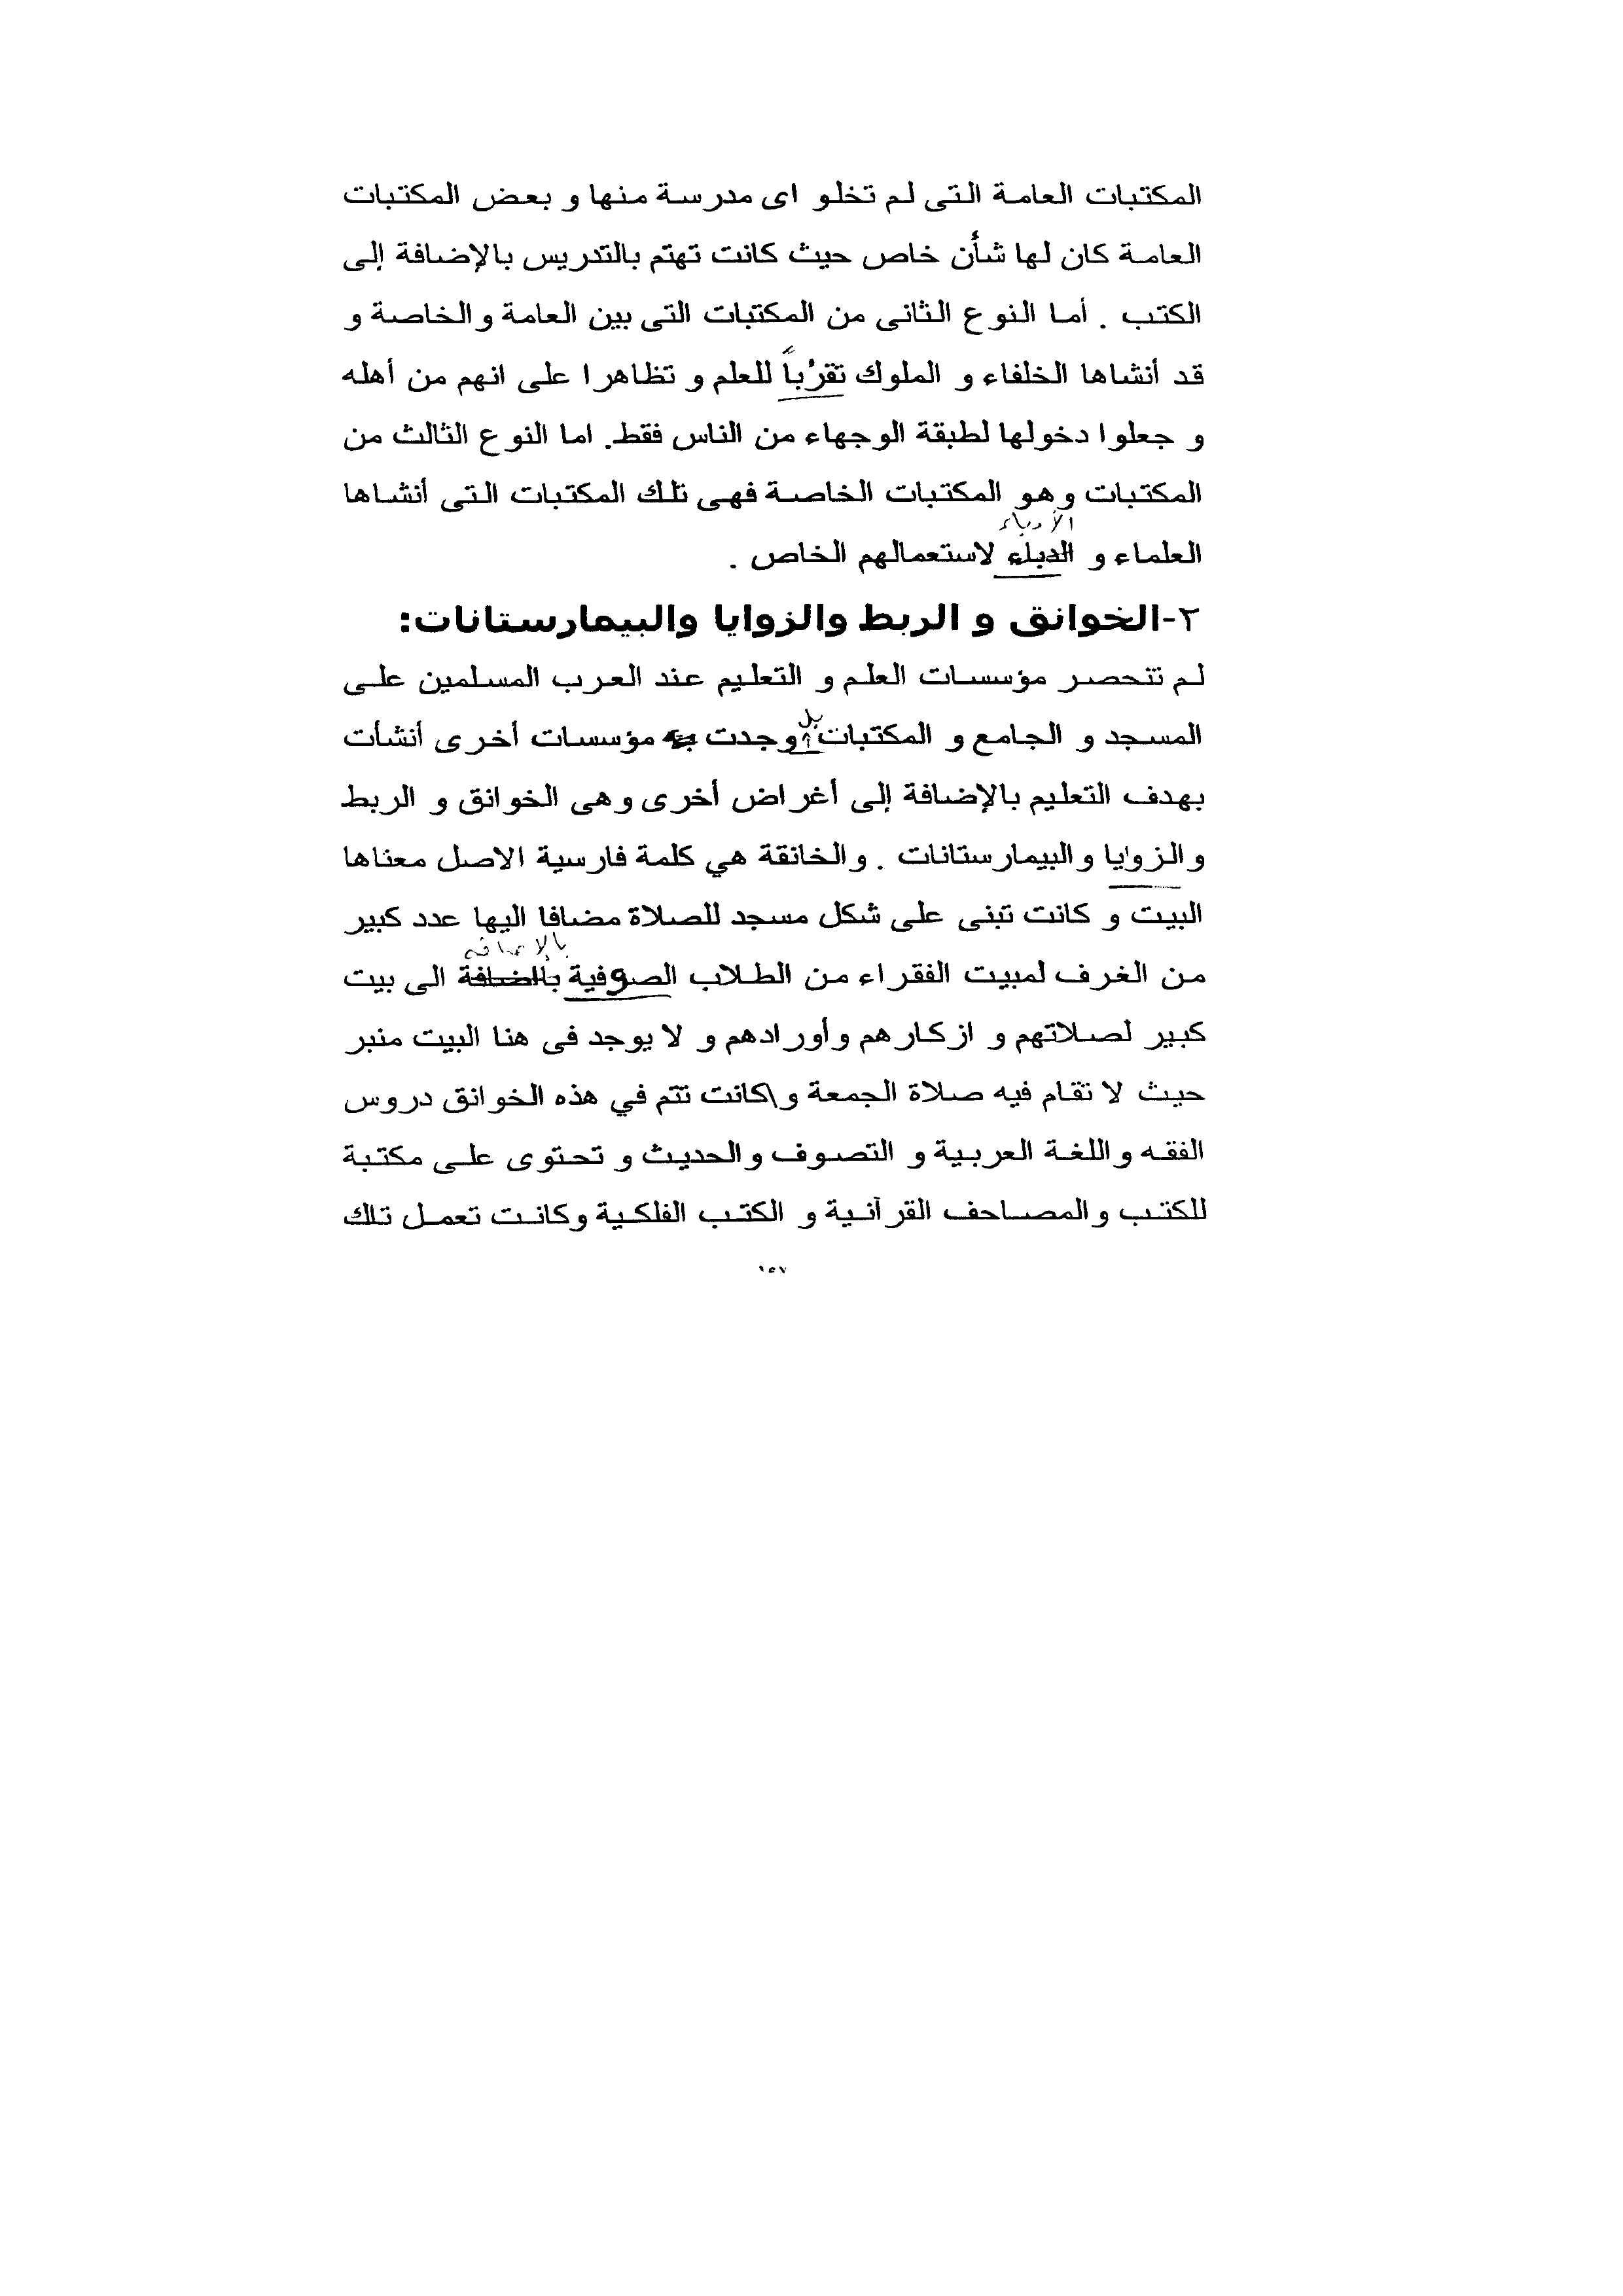 المكتبات العامة التى لم تخلو اى مدرسة منها و بعض المكتبات
العامة كان لها شأن خاص حيث كانت تهتم بالتدريس بالإضافة إلى
الكتب . أما النوع الثانى من المكتبات التى بين العامة والخاصة و
قد أنشاها الخلفاء و الملوك تقرُباً للعلم و تظاهرا على انهم من أهله
و جعلوا دخولها لطبقة الوجهاء من الناس فقط. اما النوع الثالث من
المكتبات وهو المكتبات الخاصة فهى تلك المكتبات التى أنشاها
الأدباء
العلماء و الدباء لاستعمالهم الخاص .
٢-الخوانق و الربط والزوايا والبيمارستانات:
لم تتحصر مؤسسات العلم و التعليم عند العرب المسلمين على
بل
المسجد و الجامع و المكتبات وجدت مؤسسات أخرى أنشأت
بهدف التعليم بالإضافة إلى أغراض أخرى وهى الخوانق و الربط
والزوايا والبيمارستانات . والخانقة هي كلمة فارسية الاصل معناها
البيت و كانت تبنى على شكل مسجد للصلاة مضافا اليها عدد كبير
بالإضافة
من الغرف لمبيت الفقراء من الطلاب الصوفية باضافة الى بيت
كبير لصلاتهم و ازكارهم وأورادهم و لا يوجد فى هنا البيت منبر
حيث لا تقام فيه صلاة الجمعة و\كانت تتم في هذه الخوانق دروس
الفقه واللغة العربية و التصوف والحديث و تحتوى على مكتبة
للكتب والمصاحف القرآنية و الكتب الفلكية وكانت تعمل تلك